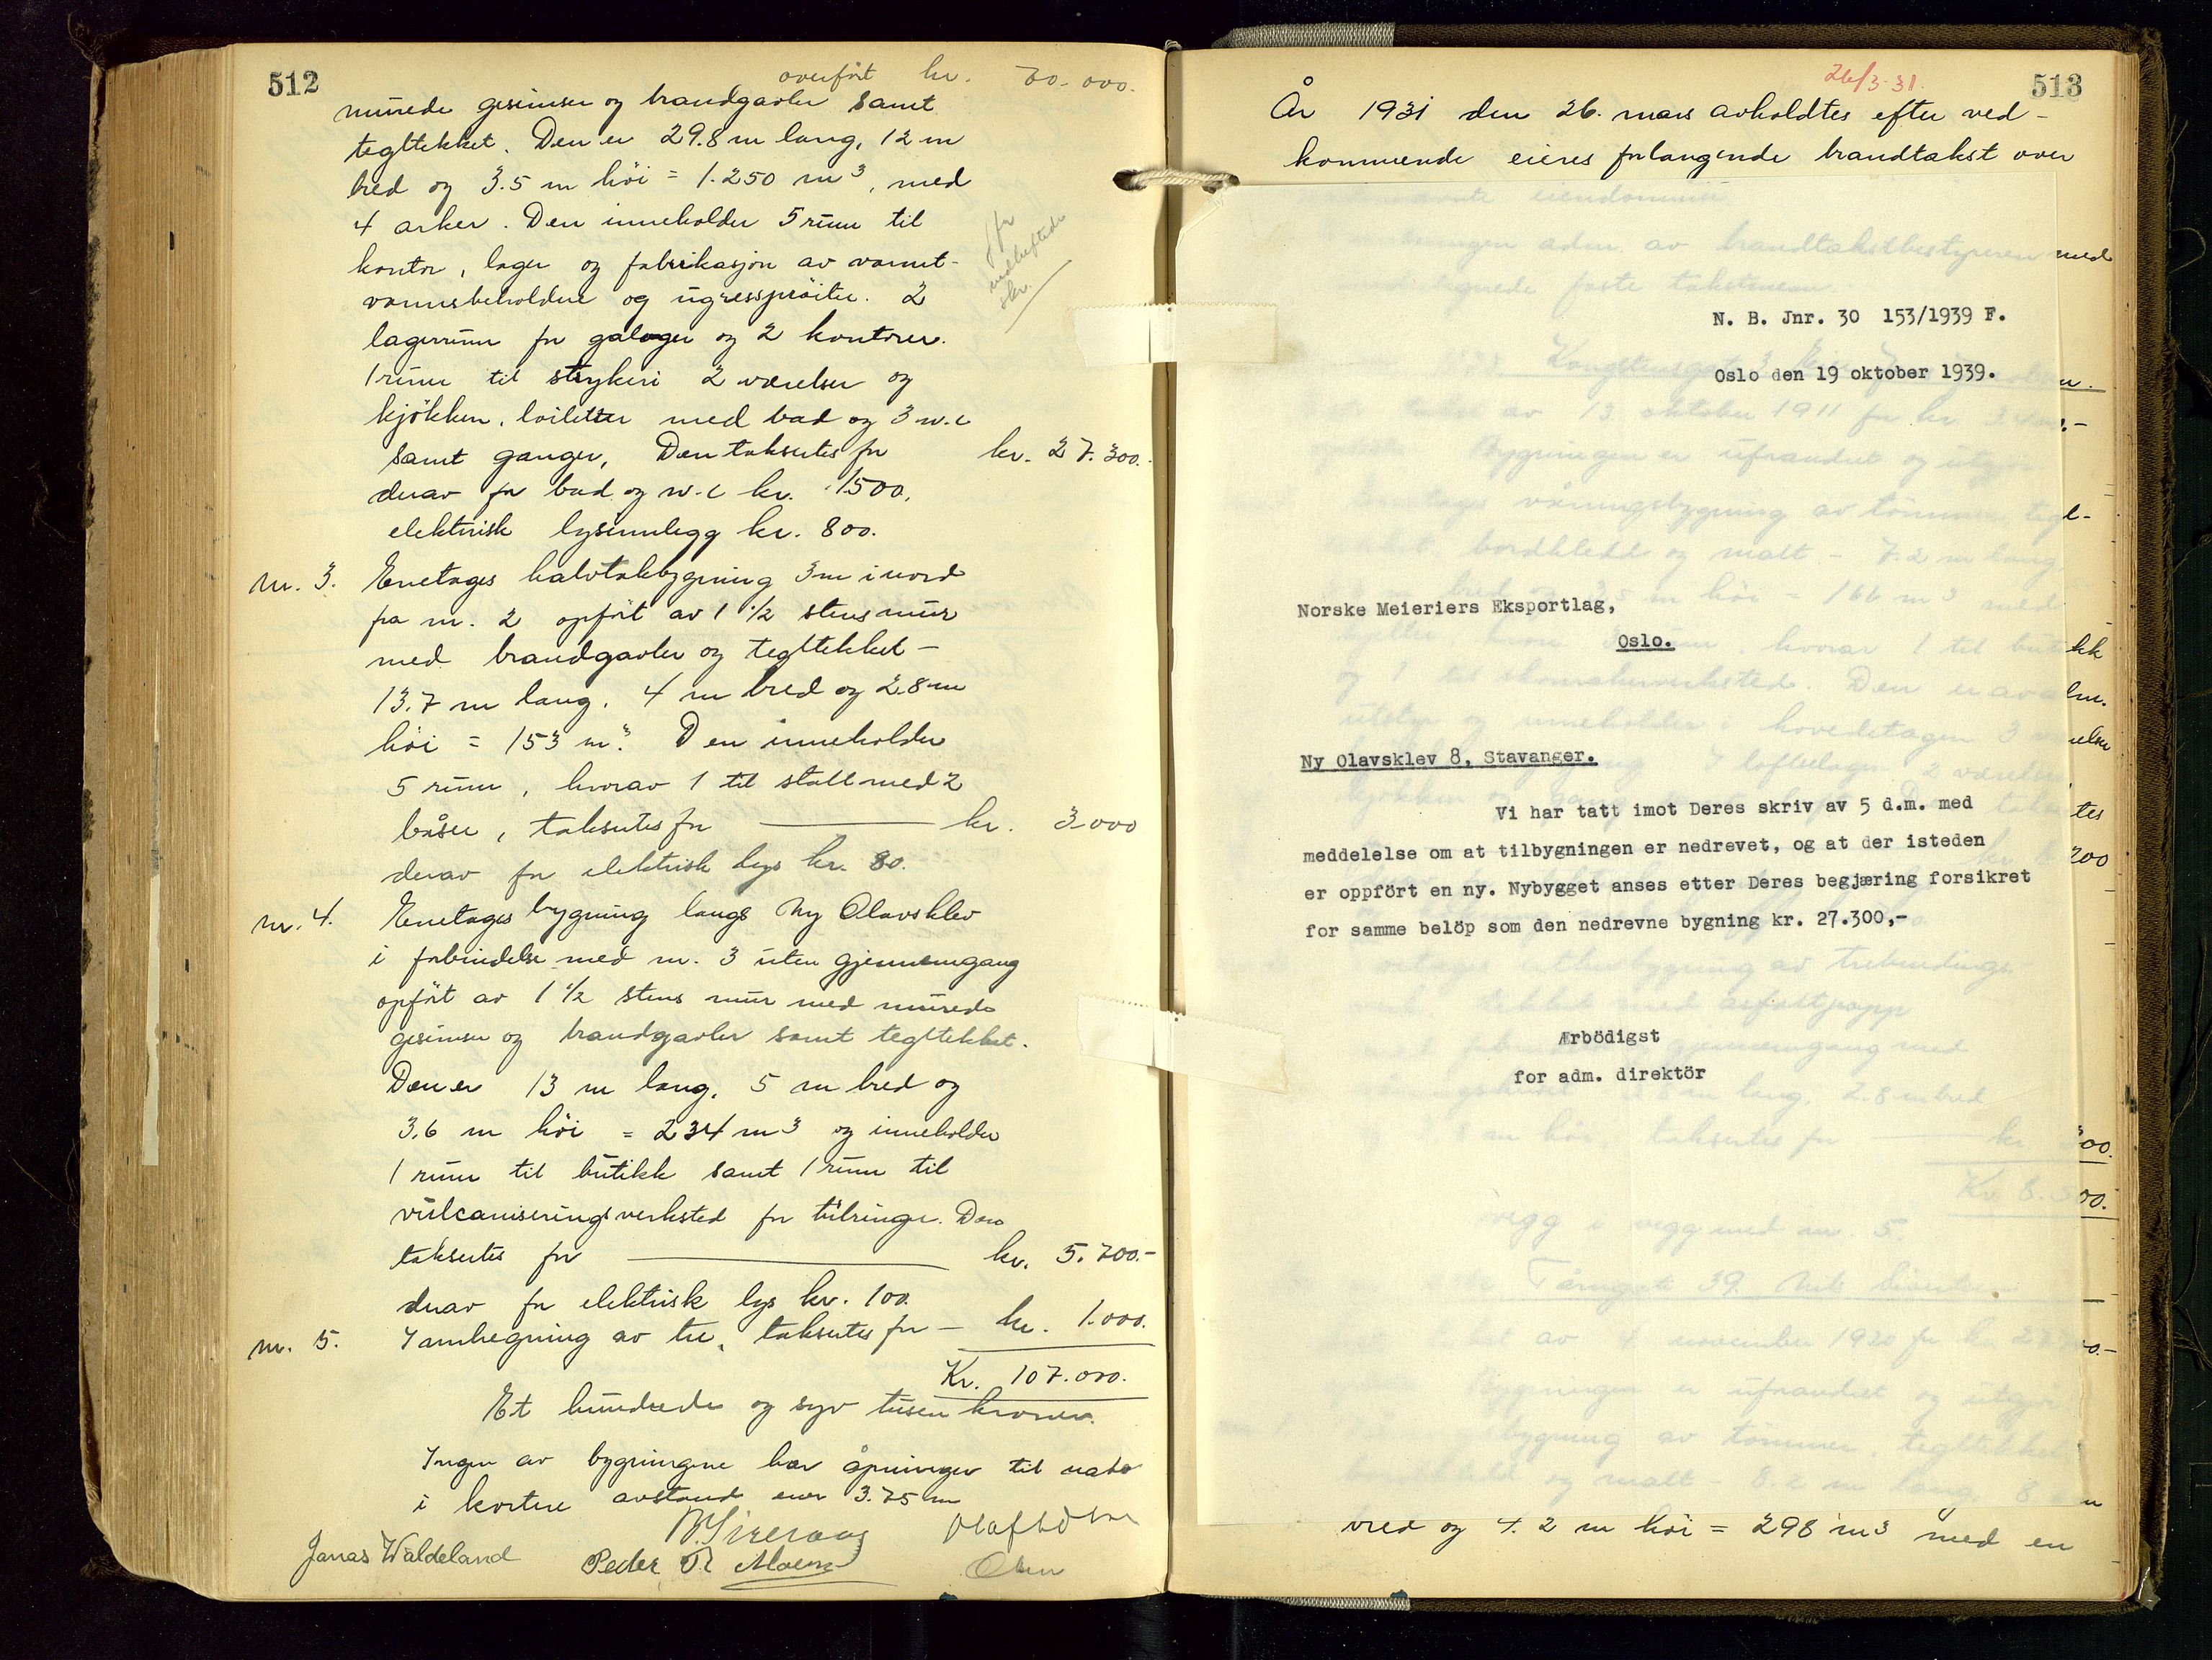 512
overført kr. 70.000.
murede gesimser og brandgavler samt
tegltekket. Den er 29.8 m lang, 12 m
bred og 3.5 m höi = 1.250 m³, med
4 arker. Den inneholder 5 rum til
kontor, lager og fabrikasjon av varmt-
vannsbeholdere og ugressprøiter. 2
lagerrum for galoger og 2 kontorer.
1 rum til strykeri 2 værelser og
kjökken, toiletter med bad og 3 w.c
samt ganger, Den takseres for kr. 27.300.-
derav for bad og w.c kr. 1500,
elektrisk lysinnlegg kr. 800.
jfr
vedheftede
skr.
nr. 3. Enetages halvtaksbygning 3m i nord
fra nr. 2 opført av 1 1/2 stens mur
med brandgavler og tegltekket -
13.7 m lang, 4 m bred og 2.8 m
höi = 153 m³. Den inneholder
5 rum, hvorav 1 til stall med 2
båser, takseres for kr. 3000
derav for elektrisk lys kr. 80.
nr. 4. Enetages bygning langs Ny Olavsklev
i forbindelse med nr. 3 uten gjennemgang
opført av 1 1/2 stens mur med murede
gesimser og brandgavler samt tegltekket.
Den er 13 m lang, 5 m bred og
3,6 m höi = 234 m³ og inneholder
1 rum til butikk samt 1 rum til
vulcaniseringsverksted for bilringe. Den
takseres for kr. 5.700.-
derav for elektrisk lys kr. 100.
nr. 5. Inhegning av tre, takseres for - kr. 1.000.
Kr. 107.000.
Et hundrede og syv tusen kroner.
Ingen av bygningene har åpninger til nabo
i kortere avstand enn 3.75 m
Jonas Waldeland
Peder Th. Moen
Olaf
Olsen
26/3-31.
513
År 1931 den 26. mars avholdtes efter ved-
kommende eieres forlangende brandtakst over
med
N. B. Jnr. 30 153/1939 F.
Oslo den 19 oktober 1939.
Norske Meieriers Eksportlag,
Oslo.
Ny Olavsklev 8, Stavanger.
Vi har tatt imot Deres skriv av 5 d.m. med
meddelelse om at tilbygningen er nedrevet, og at der isteden
er oppfört en ny. Nybygget anses etter Deres begjæring forsikret
for samme belöp som den nedrevne bygning kr. 27.300,-
Ærbödigst
for adm. direktör
bred og 4.2 m höi = 298 m³ med en